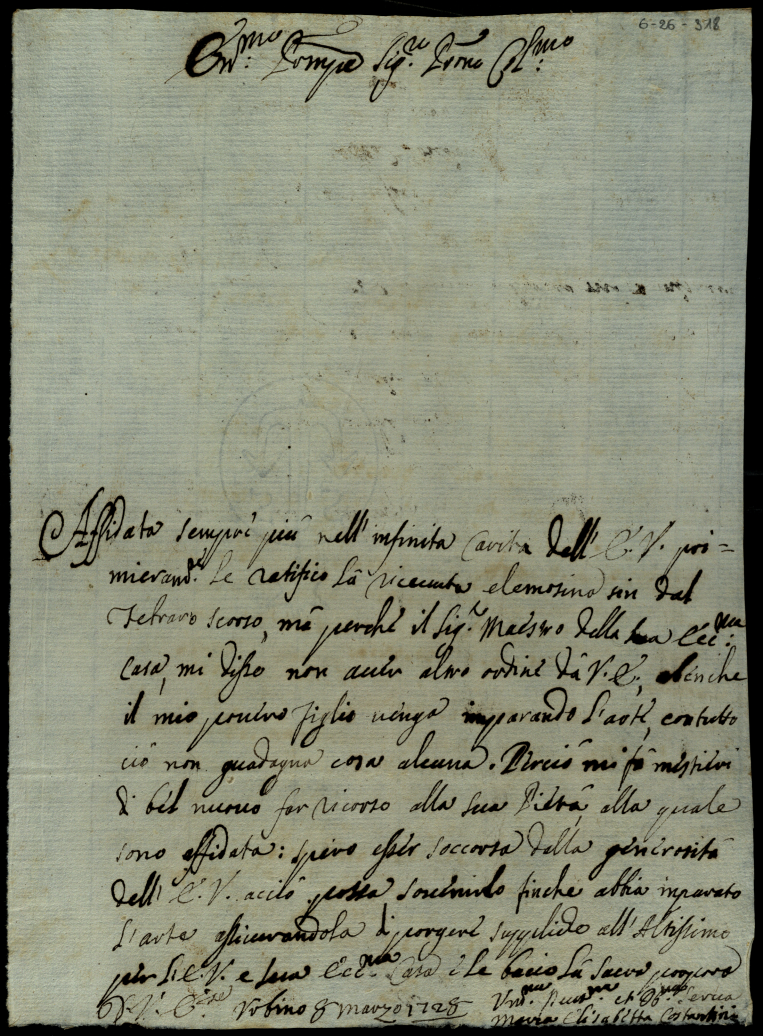 6-26-318
Em.mo Principe Sig.re Prone Col.mo
Affidata sempre più nell'infinita Carità dell'E.V. pri=
mierand.e Le ratifico La riceuuta elemosina sin dal
Febraro scorso, mà perche il Sig.r Maestro della sua Ecc.ma
Casa, mi disse non auer altro ordine dà V.E., abenche
il mio pouero figlio uenga imparando l'arte, contutto
ciò non guadagna cosa alcuna. Perciò mi fà mestieri
di bel nuouo far ricorso alla sua Pietà, alla quale
sono affidata: spero esser soccorsa dalla generosità
dell'E.V. acciò possa sostenirlo finche abbia imparato
l'arte assicurandola di porgere suppliche all'Altissimo
per L'E.V. e sua Ecc.ma Casa e le bacio La Sacra porpora
D.V. E. Vrbino 8 Marzo 1728 Vm.ma Deuo.ma et Ob.ma Serua
Maria Elisabetta Costantini